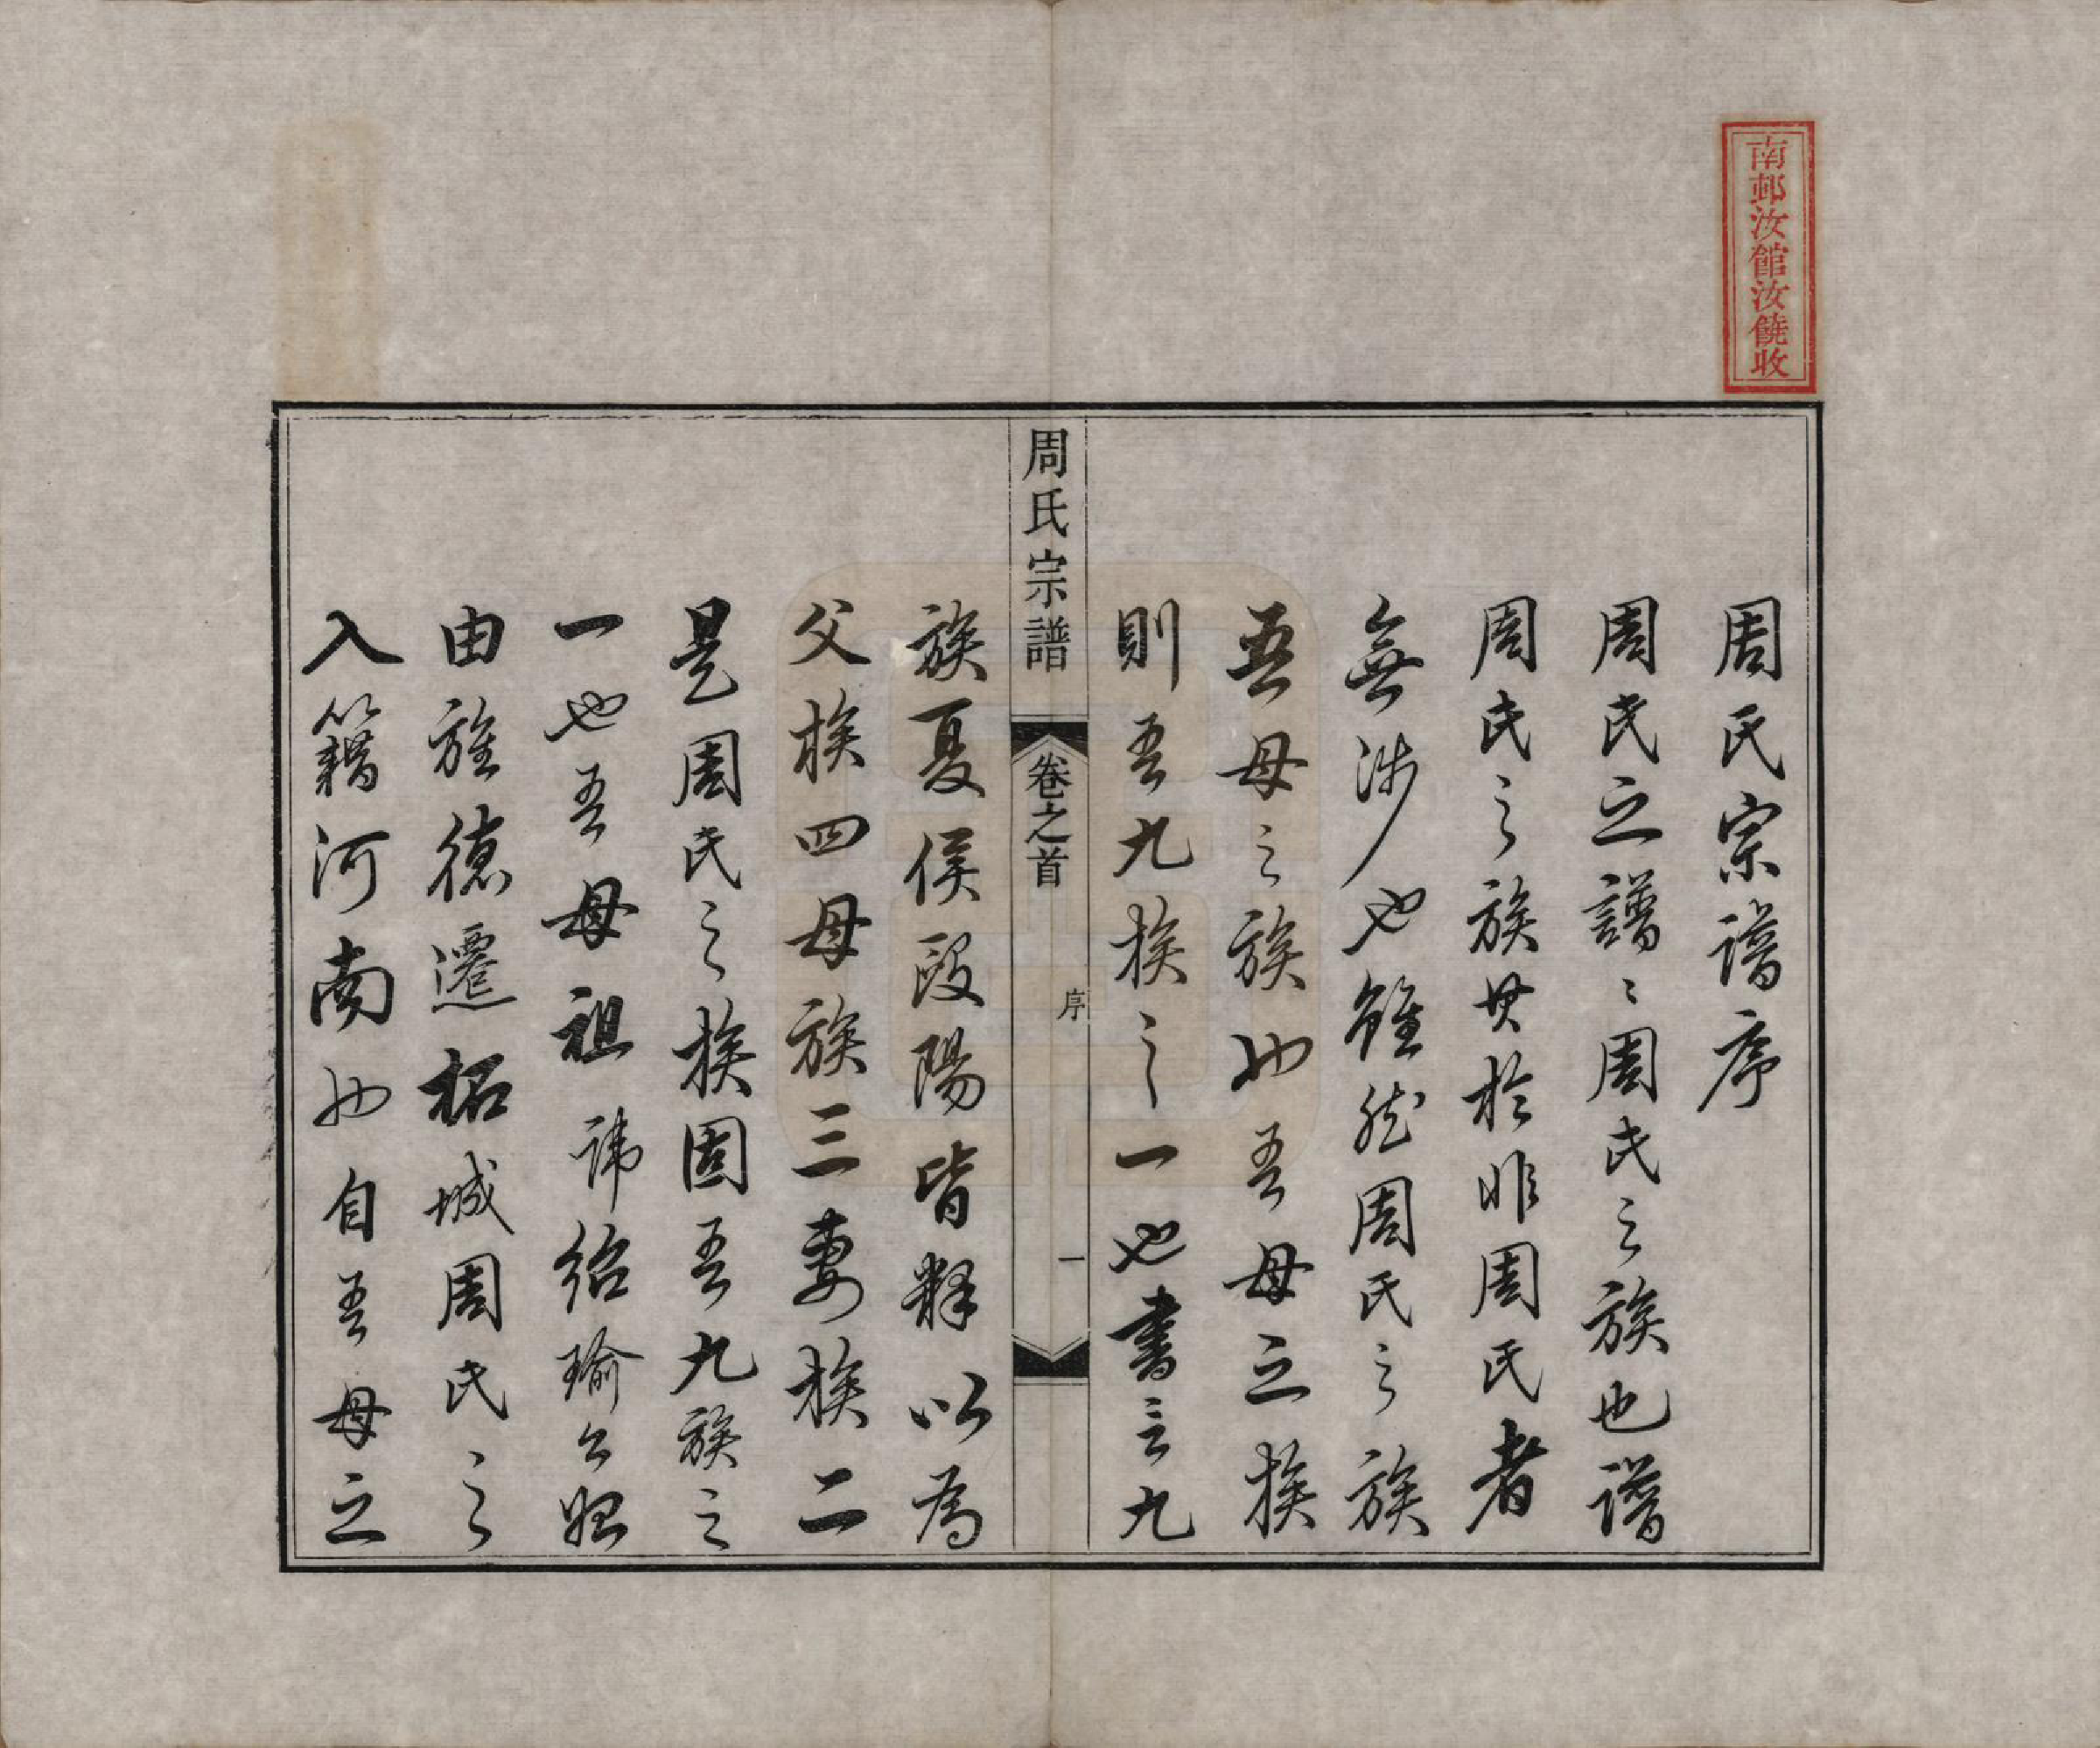 南邨汝館汝饒收
周氏宗譜序
周氏之譜〻周氏之族也譜
周氏之族其於非周氏者
無涉也雖然周氏之族
吾母之族也吾母之族
則吾九族之一也書言九
周氏宗譜 卷之首 序 一
族夏侯歐陽皆釋以為
父族四母族三妻族二
是周氏之族固吾九族之
一也吾母祖諱紹瑜公始
由旌德遷柘城周氏之
入籍河南也自吾母之